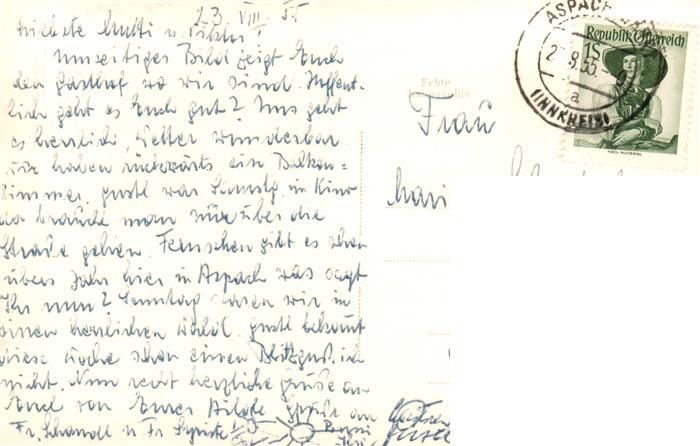 23. VIII. 55
Liebste Mutti u. Viktor!
Umseitiges Bild zeigt Euch
den Gasthof wo wir sind. Hoffent-
lich geht es Euch gut? Uns geht
es herrlich, Wetter wunderbar.
Wir haben rückwärts ein Balkon-
zimmer. Gustl war Samstg. im Kino
da braucht man nur über die
Straße gehen. Fernsehen gibt es schon
übers Jahr hier in Aspach was sagt
Ihr nun? Sonntag waren wir in
einen herrlichen Wald. Gustl bekommt
diese Woche schon einen
nicht. Nun recht herzliche Grüße an
Euch von Eurer Grüße an
Fr. Schandl u. Fr.
Echte
Frau
Mari
ASPACH
2 8.55
a
(INNKREIS)
Republik Österreich
1S